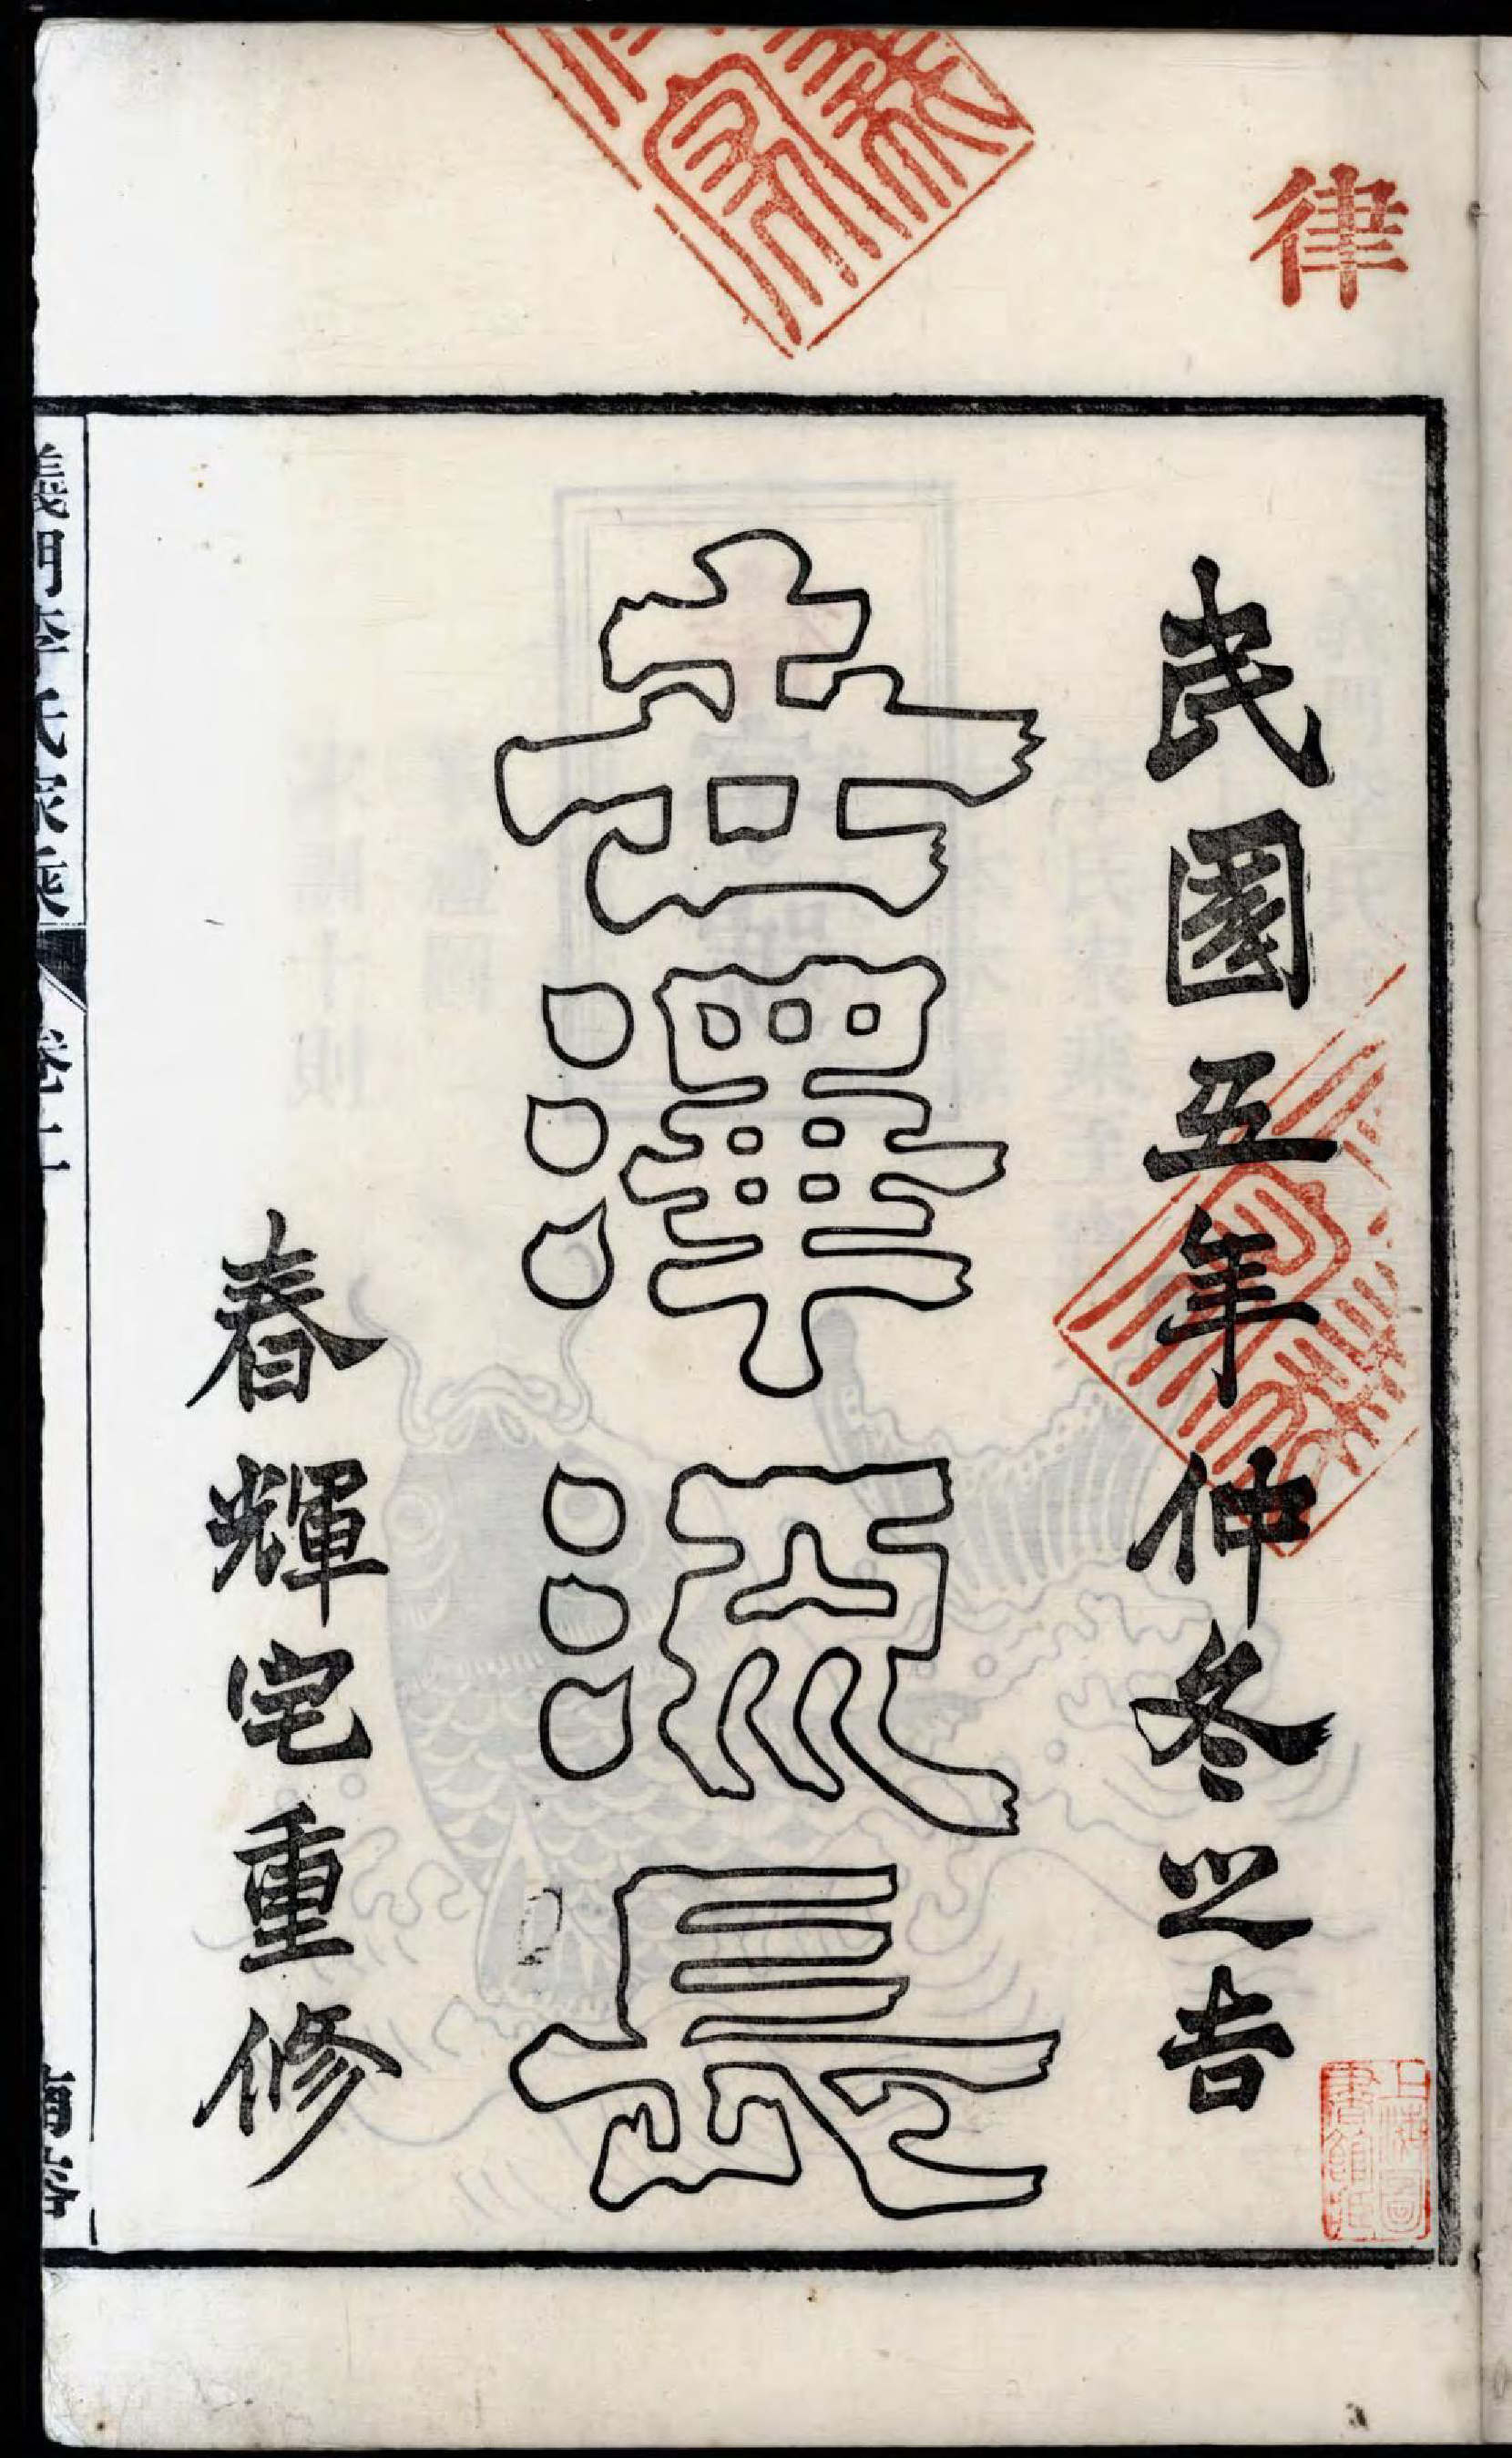 律
民國五年仲冬之吉
世澤流長
春輝宅重修
上海圖
書館藏